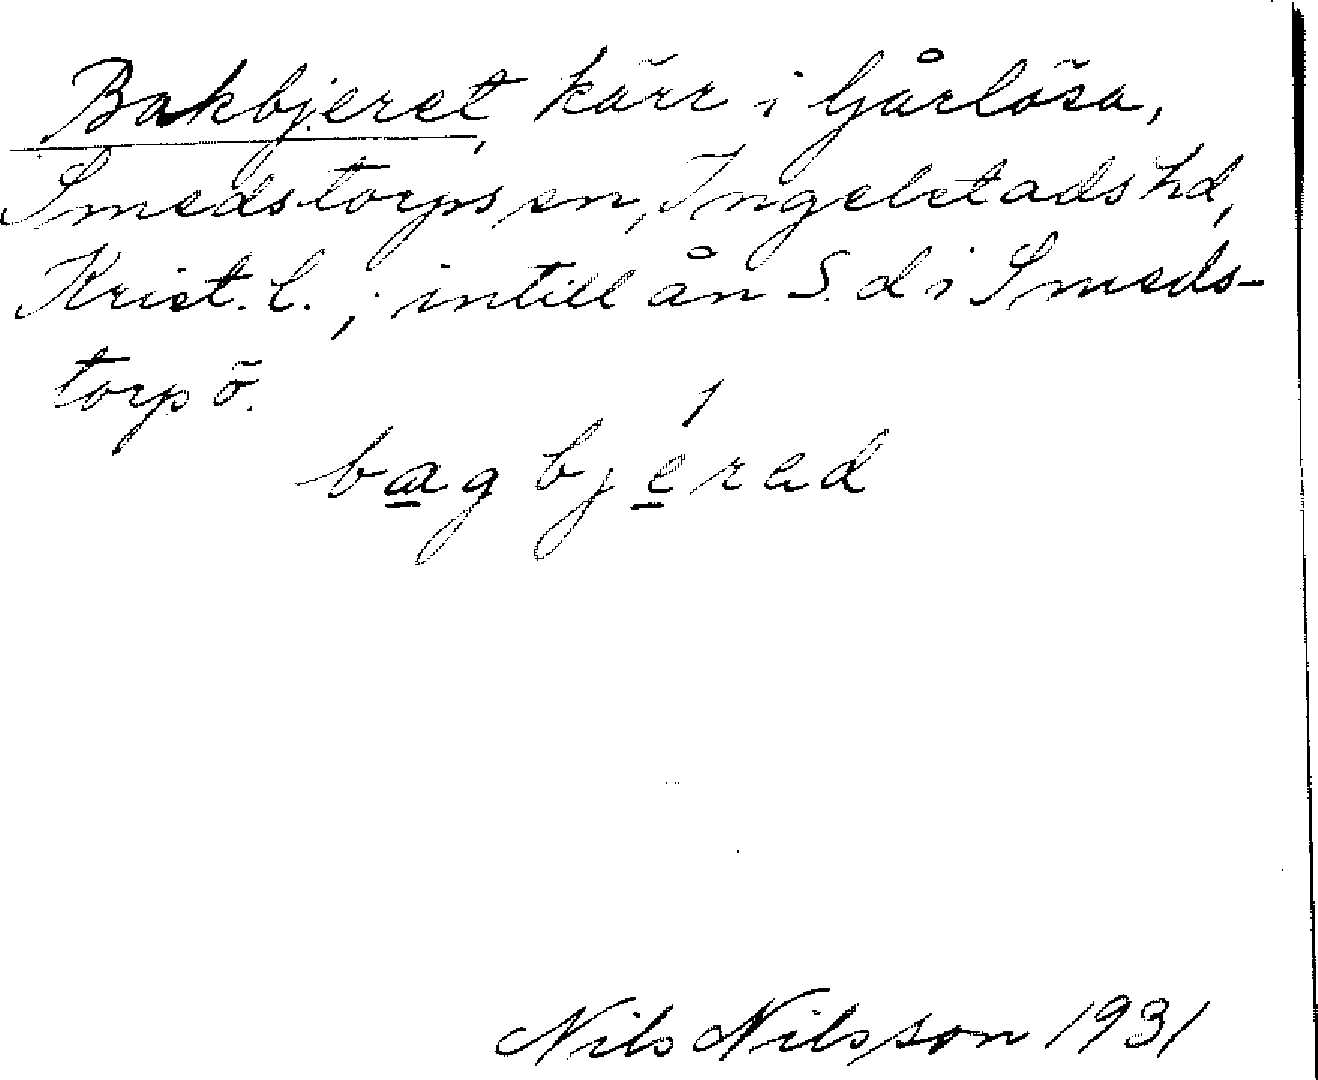 Bakbjeret, kärr i Gårlösa,
Smedstorps sn, Ingelstads hd,
Krist. l.; intill ån S. d i Smeds-
torp ö.
bag bjerad
Nils Nilsson 1931